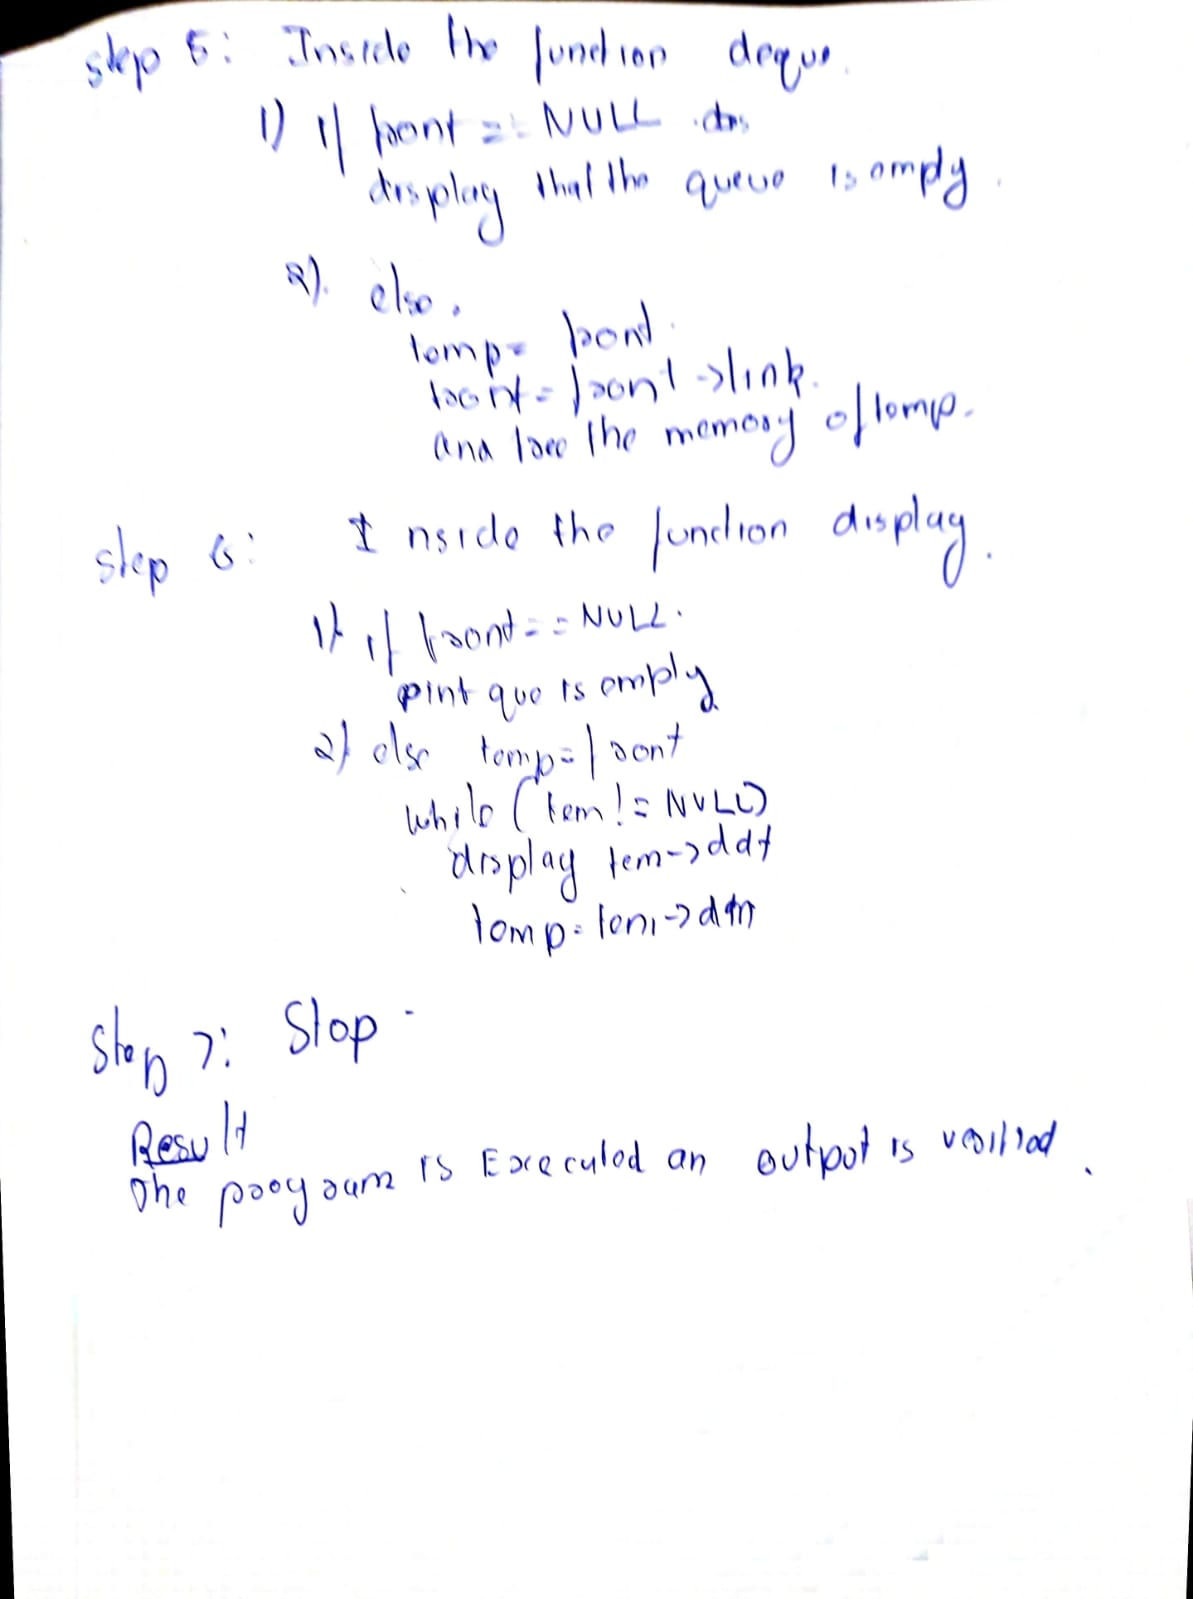 step 5: Inside the function deque.
1) if front == NULL dis
display that the queue is empty.
2). else,
temp= front.
front= front->link.
and free the memory of temp.
step 6: Inside the function display.
1} if front== NULL.
pint que is empty
2} else temp= front
while (tem!= NULL)
display tem->dat
temp= tem->
Step 7: Stop.
Result
The program is Executed an output is verified.